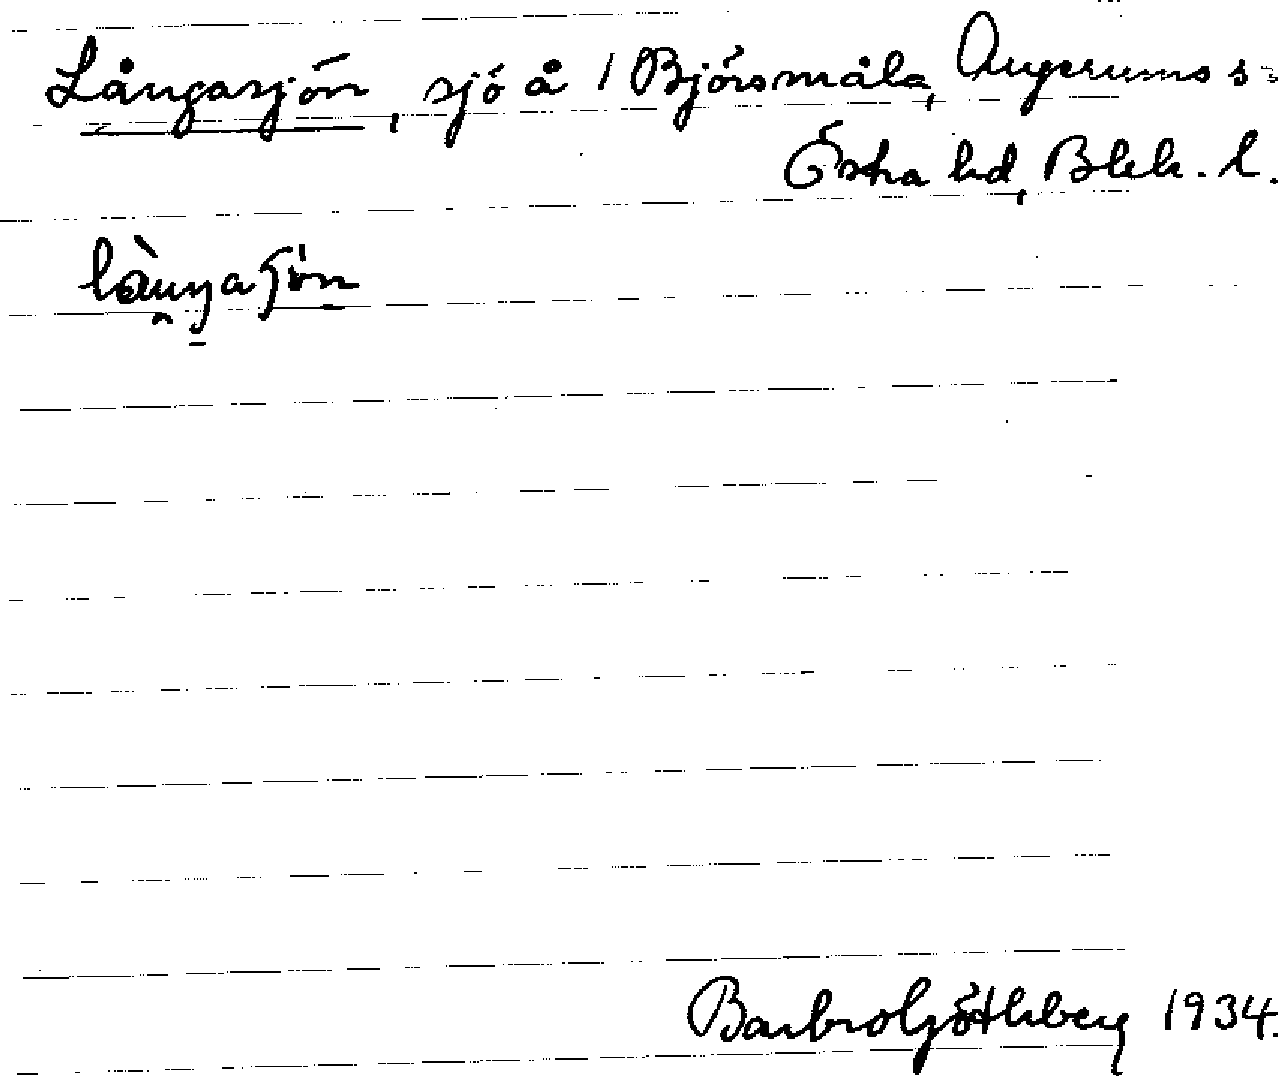 Långasjön, sjö å 1 Björsmåla, Augerums s
Östra hd, Blek. l.
Barbro Götthberg 1934.